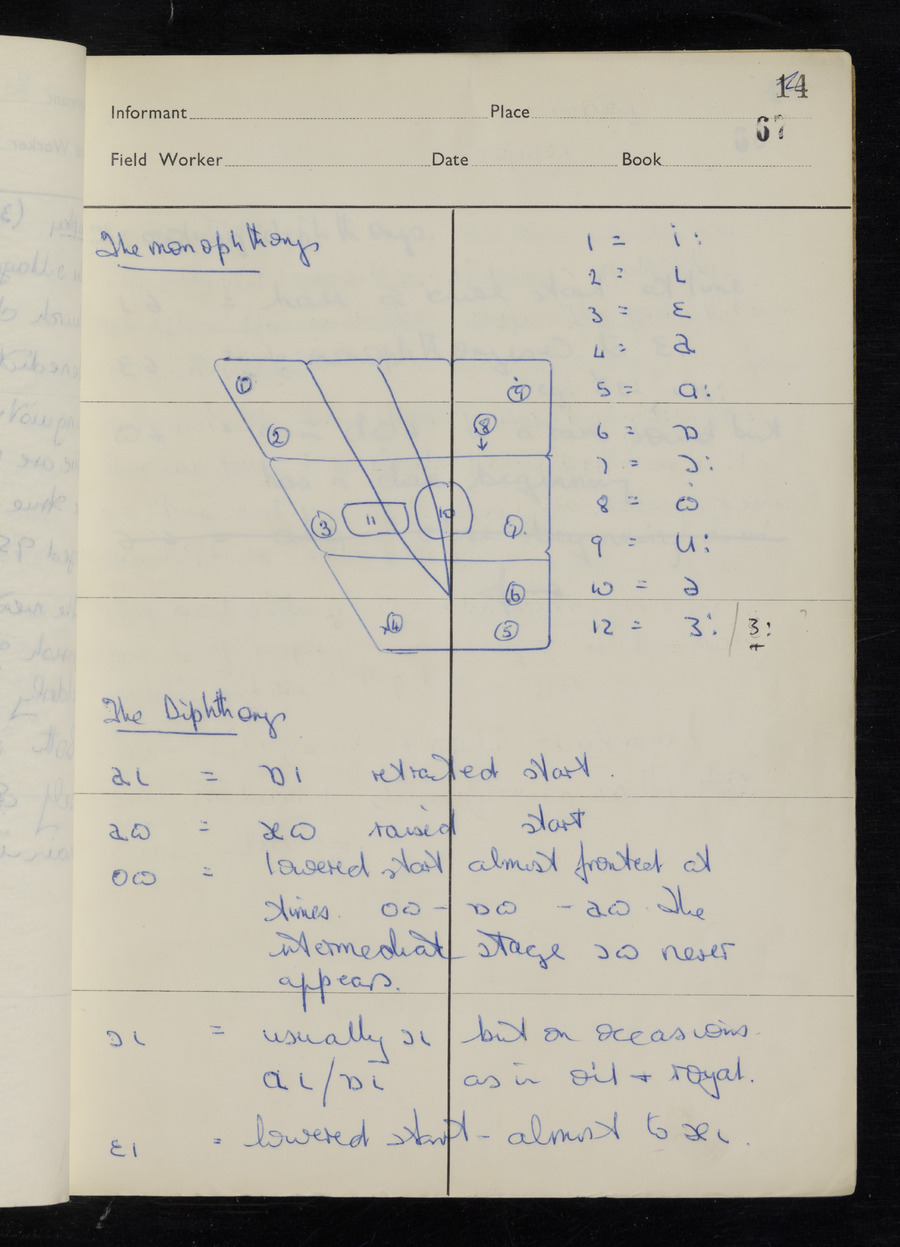 14
Informant Place
67
Field Worker Date Book
The monophthongs
1 = i:
2 = ɩ
3 = ɛ
4 = a
5 = ɑ:
6 = ɒ
7 = ɔ:
8 = ɷ
9 = u:
10 = ə
12 = ɜ: / ɜ: ?
1
9
2
8
3
11
10
7
6
4
5
The Diphthongs
aɩ = ɒɩ retracted start.
aɷ = æɷ raised start
oɷ = lowered start almost fronted at
times. oɷ - ɒɷ - aɷ. The
intermediate stage ɔɷ never
appears.
ɔɩ = usually ɔɩ but on occasions
ɑɩ/ɒɩ as in oil + royal.
ɛɩ = lowered start - almost to æɩ.